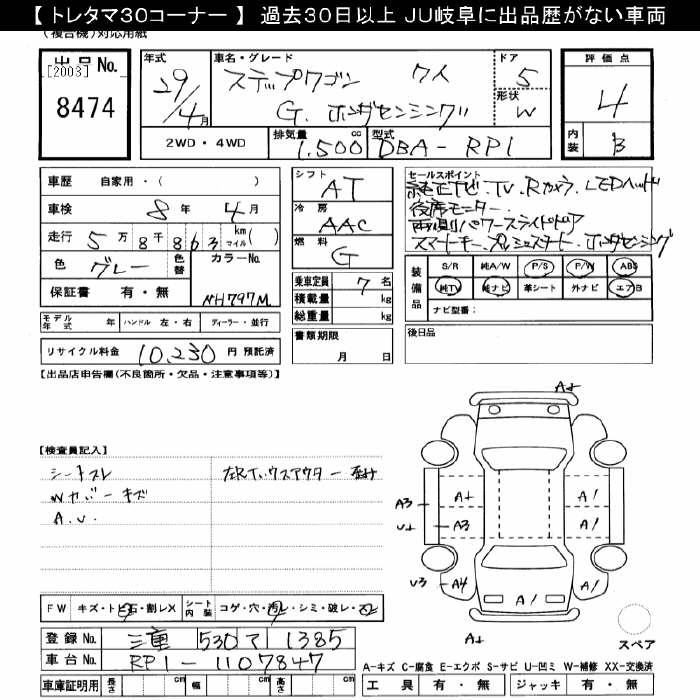 【 トレタマ30コーナー 】 過去30日以上 JU岐阜に出品歴がない車両
(複合機)対応用紙
出品No.
[2003]
8474
年式
29/4月
車名・グレード
ステップワゴン 7人
G. ホンダセンシング
ドア
5
形状
W
評価点
4
内装
B
2WD・4WD
排気量
1,500 cc
型式
DBA-RP1
車歴 自家用・( )
車検 8年 4月
走行 5万8千863 km マイル( )
色 グレー 色替 カラーNo.
保証書 有・無 NH797M
モデル年式 年 ハンドル 左・右 ディーラー・並行
リサイクル料金 10,230 円 預託済
シフト
AT
冷房
AAC
燃料
G
乗車定員 7 名
積載量 kg
総重量 kg
書類期限
月 日
セールスポイント
純正ナビ.TV.Rカメラ.LEDヘッド
後席モニター.
両側パワースライドドア
スマートキー.プッシュスタート.ホンダセンシング
装備品
S/R 純A/W P/S P/W ABS
純TV 純ナビ 革シート 外ナビ エアB
ナビ型番:
後日品
【出品店申告欄(不良箇所・欠品・注意事項等)】
【検査員記入】
シートスレ
Wカバーキズ
A.U.
左Rドウスアウター
FW キズ・トビ石・割レX シート内装 コゲ・穴・汚レ・シミ・破レ・スレ
登録No. 三重 530 マ 1385
車台No. RP1-1107847
車庫証明用 長さ cm 幅 cm 高さ cm
A+
A3
U+
A+
A1
A3
A1
U3
A4
A1
A1
A+
スペア
A-キズ C-腐食 E-エクボ S-サビ U-凹ミ W-補修 XX-交換済
工具 有・無 ジャッキ 有・無